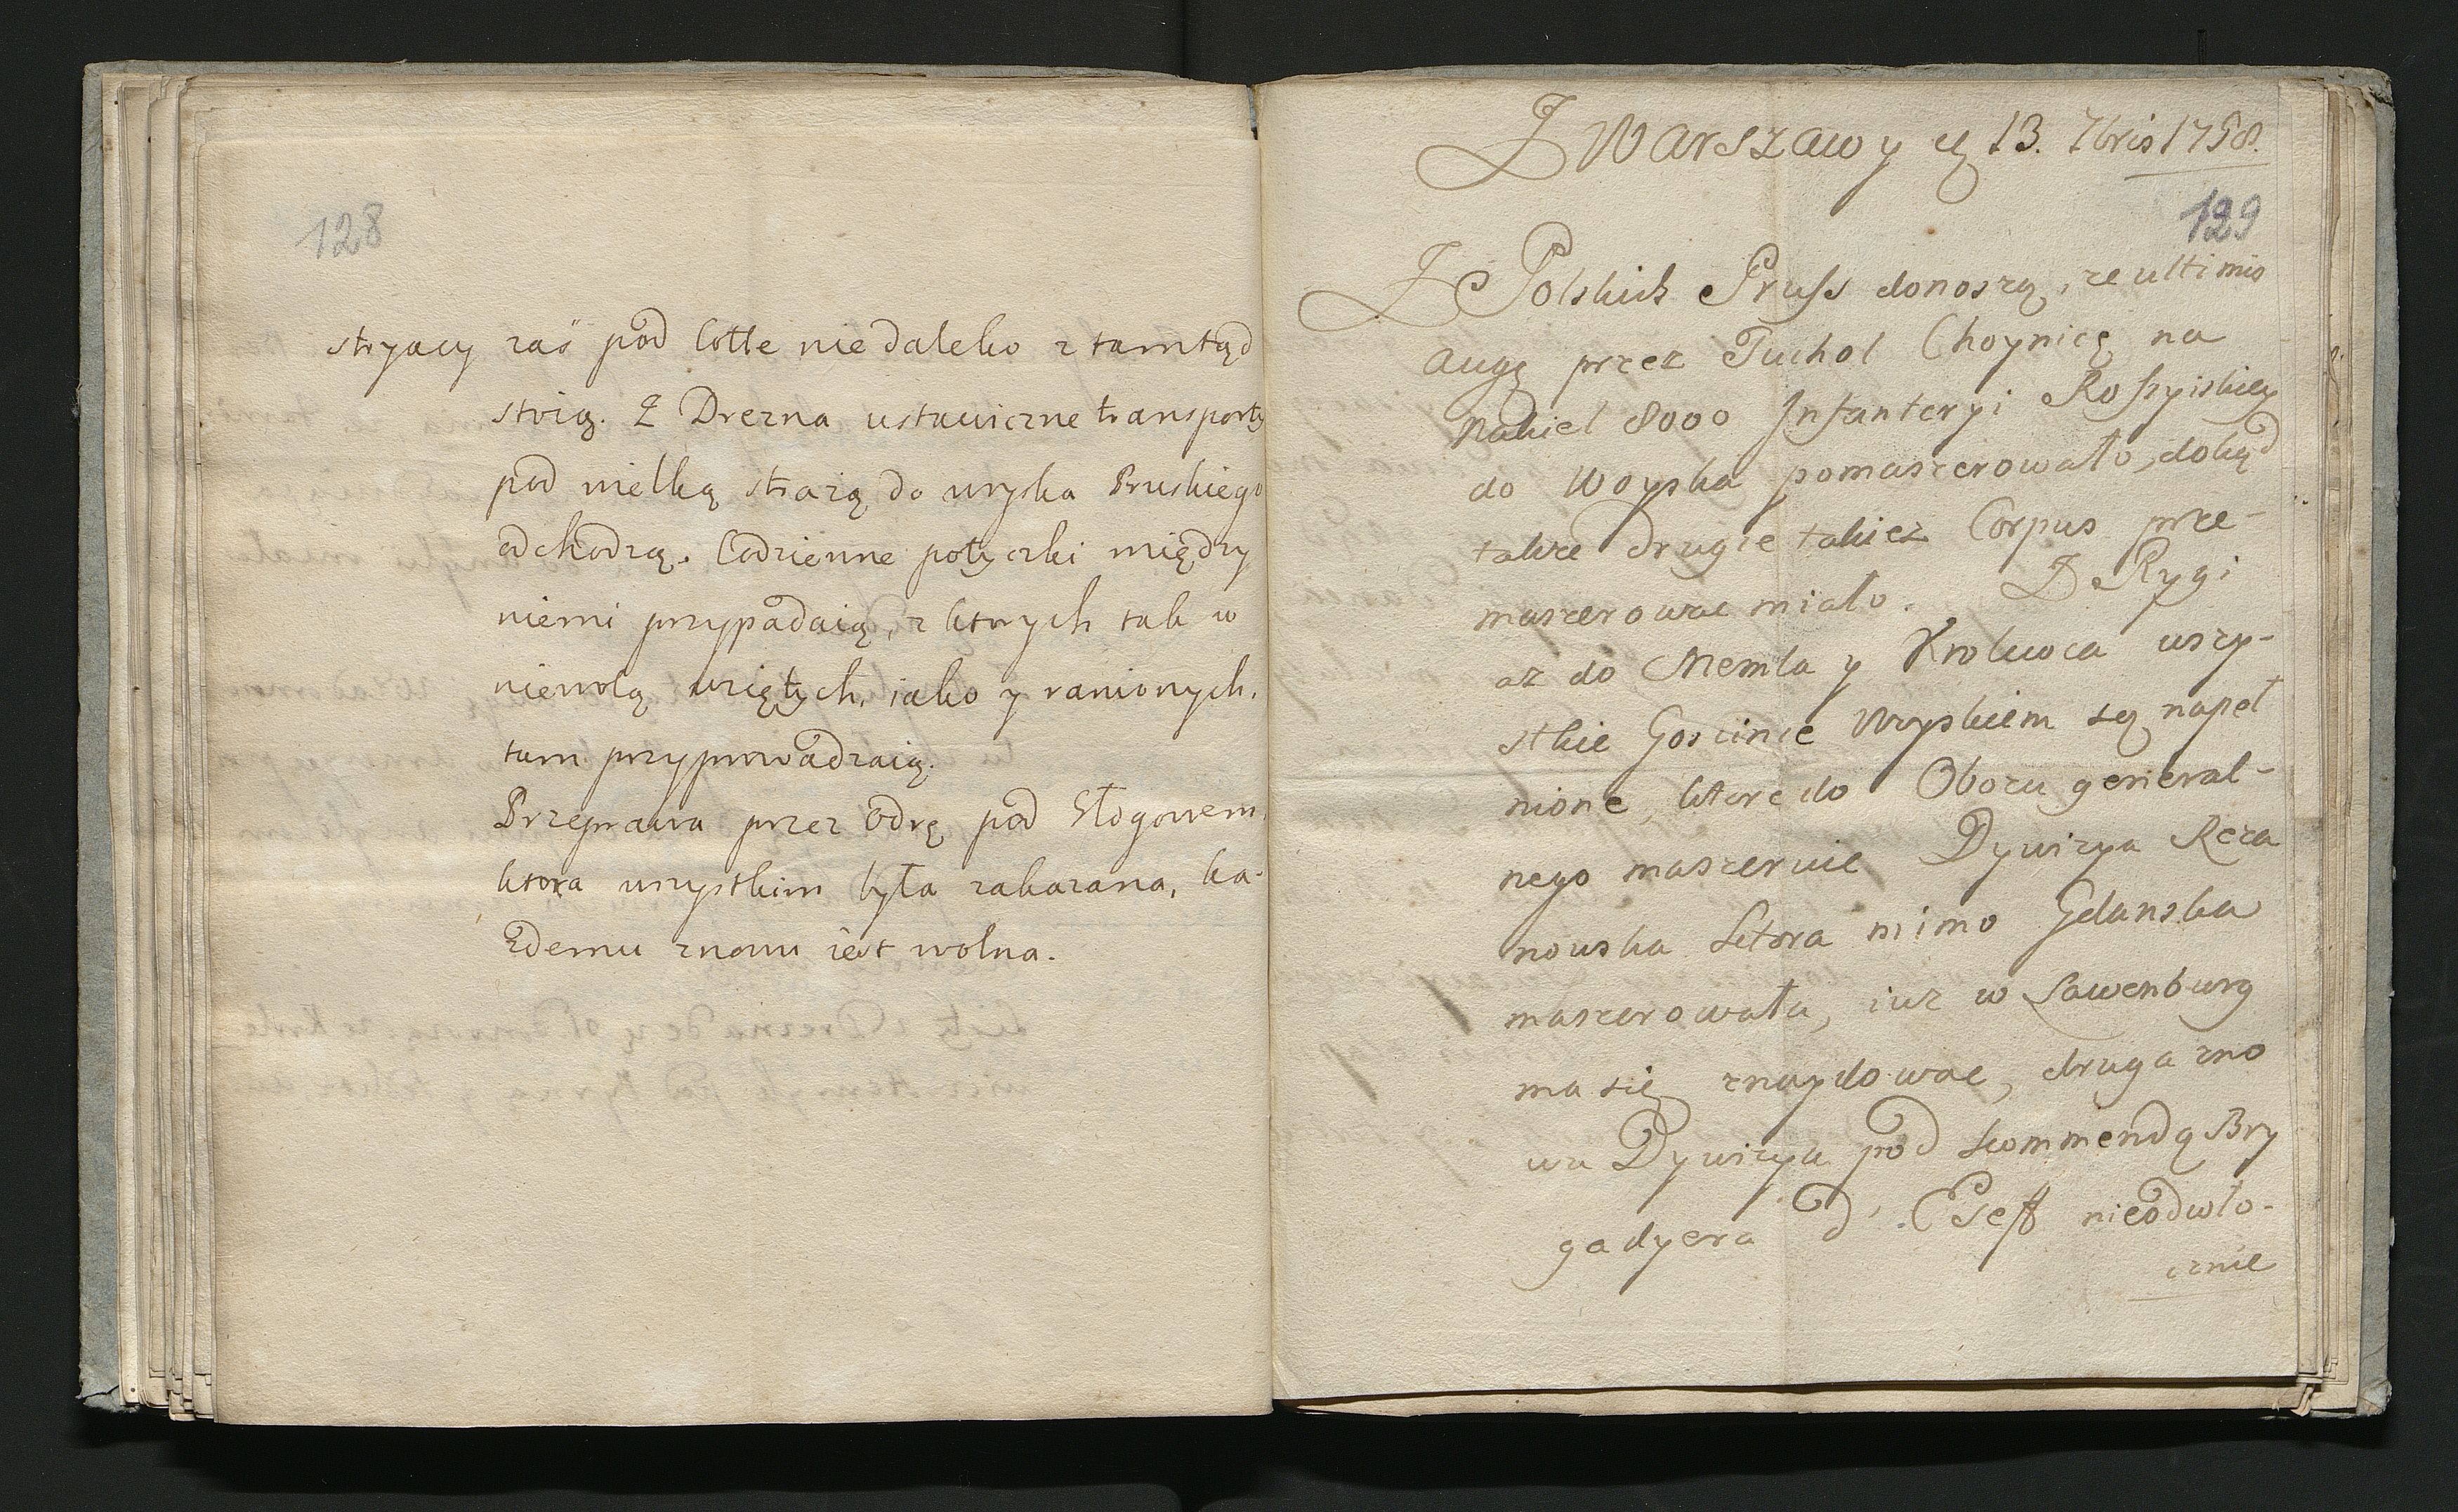 128
stryacy zaś pod Cotte niedaleko z tamtąd
stoią. Z Drezna ustawiczne transporty
pod wielką strażą do woyska Pruskiego
odchodzą. Codzienne potyczki między
niemi przypadaią, z ktorych tak w
niewolą wziętych, iako y ranionych,
tam przyprowadzaią.
Przeprawa przez Odrę pod Głogowem,
ktora wszystkim była zakazana, ka-
żdemu znowu iest wolna.
Z Warszawy d 13. 7bris 1758.
129
Z Polskich Pruss donoszą, ze ultimis
Augą przez Tuchol Choynicę na
Nakiel 8000 Infanteryi Rossyiskiey
do Woyska pomaszerowało, dokąd
takze drugie takiez Corpus prze-
maszerowac miało. Z Rygi
az do Memla y Krolewca wszy-
stkie Goscince Woyskiem są napeł
nione, ktore do Obozu general-
nego maszeruie Dywizya Reza
nowska ktora mimo Gdanska
maszerowała, iuz w Lawenburg
ma się znaydowac, druga zno
wu Dywizya pod kommendą Bry
gadyera d'. Eseff nieodwło-
cznie